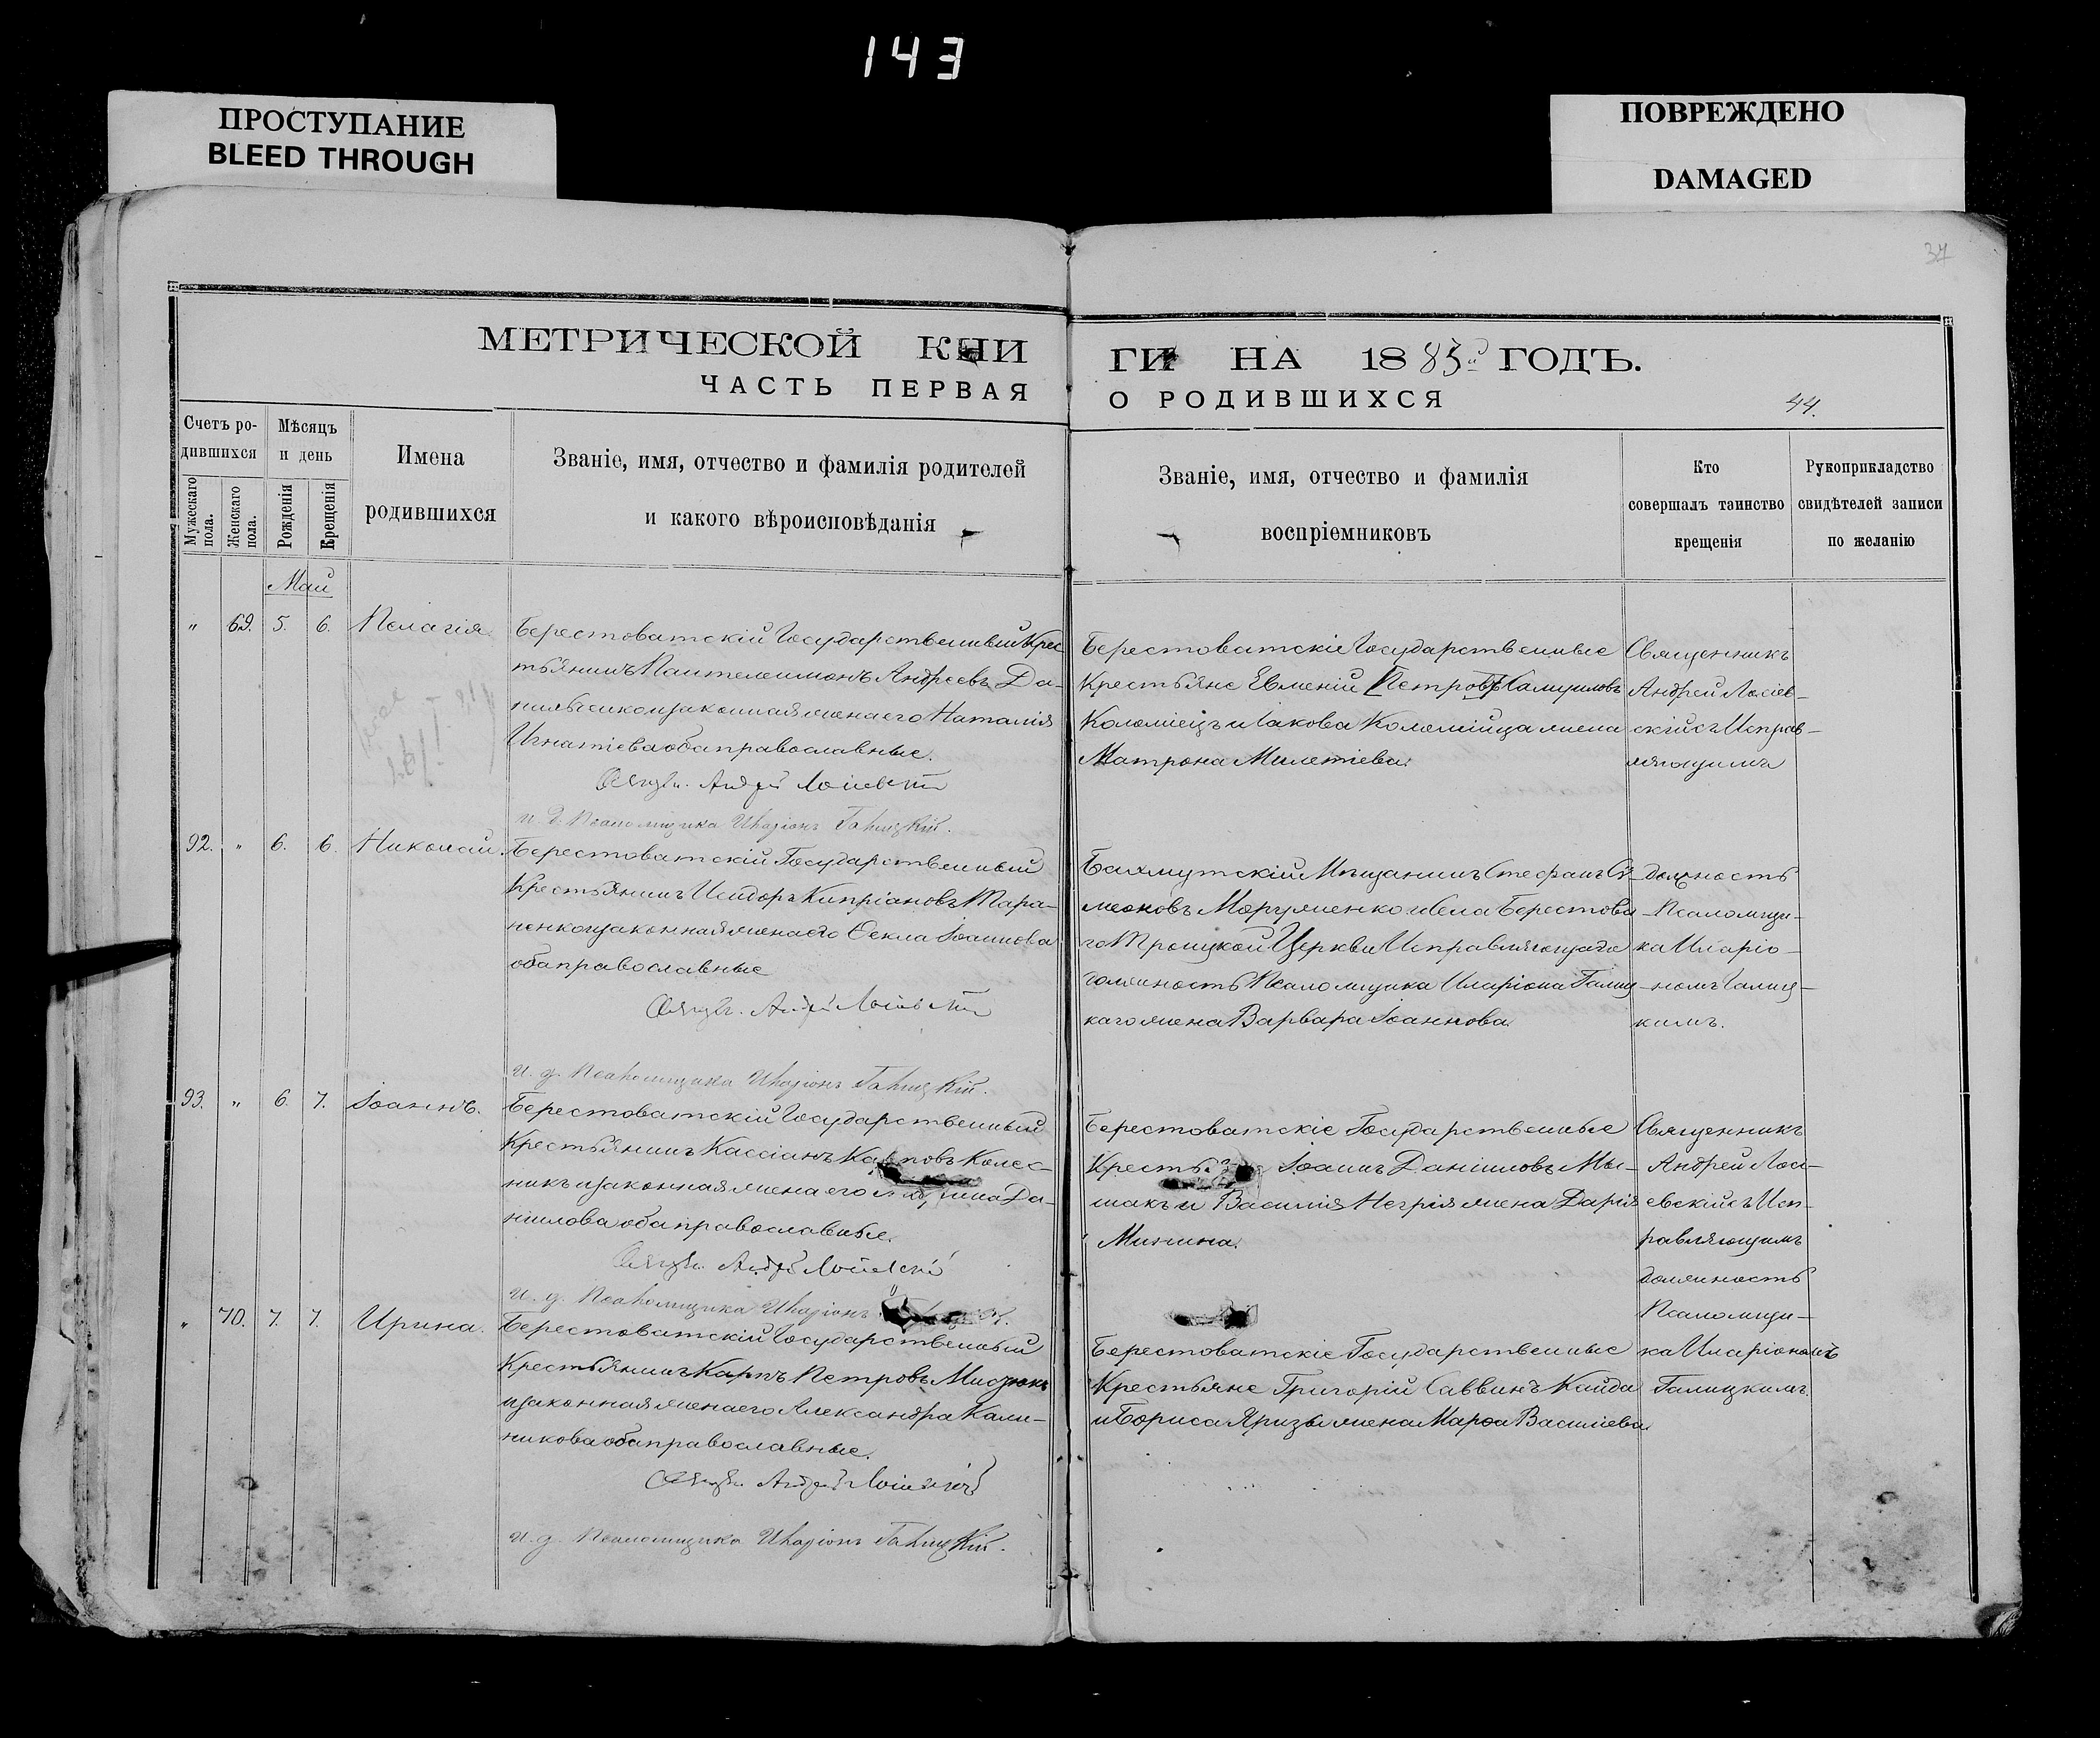 143
ПРОСТУПАНИЕ
BLEED THROUGH
ПОВРЕЖДЕНО
DAMAGED
37
МЕТРИЧЕСКОЙ КНИ
ЧАСТЬ ПЕРВАЯ
ГИ НА 1883й ГОДЪ.
О РОДИВШИХСЯ
44.
Счетъ ро-
дившихся
Мужескаго пола.
Женскаго пола.
Мѣсяцъ
и день
Рожденія
Крещенія
Имена
родившихся
Званіе, имя, отчество и фамилія родителей
и какого вѣроисповѣданія
Званіе, имя, отчество и фамилія
воспріемниковъ
Кто
совершалъ таинство
крещенія
Рукоприкладство
свидѣтелей записи
по желанію
Май
" 69. 5. 6. Пелагія
Берестоватскій Государственный Крес
тьянинъ Пантелеимонъ Андреевъ Да-
нильченко и законная жена его Наталія
Игнатіева оба православные.
Священ. Андрей Лосіевскій
и. д. Псаломщика Иларіонъ Галицкій.
Берестоватскіе Государственные
Крестьяне Евменій Петровъ Самуиловъ
Коломіецъ и Іакова Коломійца жена
Матрона Мелетіева.
Священникъ
Андрей Лосіев-
скій съ Исправ-
ляющимъ
92. " 6. 6. Николай.
Берестоватскій Государственный
Крестьянинъ Исидоръ Кипріановъ Тара-
ненко и законная жена его Ѳекла Іоаннова
оба православные
Священ. Андрей Лосіевскій
и. д. Псаломщика Иларіонъ Галицкій.
Бахмутскій Мѣщанинъ Стефанъ Си-
меоновъ и села Берестова
го Троицкой Церкви Исправляющаго
должность Псаломщика Иларіона Галиц-
каго жена Варвара Іоаннова.
должность
Псаломщи-
ка Иларіо-
номъ Галиц-
кимъ.
93. " 6. 7. Іоаннъ.
Берестоватскій Государственный
Крестьянинъ Кассіанъ Карповъ Колес-
никъ и законная жена его Да-
ніилова оба православные.
Священ. Андрей Лосіевскій
и. д. Псаломщика Иларіонъ
Берестоватскіе Государственные
Іоаннъ Даніиловъ Мы-
шакъ и Василія Негрія жена Дарія
Минина.
Священникъ
Андрей Лосі-
евскій съ Исп-
равляющимъ
должность
Псаломщи-
ка Иларіономъ
Галицкимъ.
" 70. 7. 7. Ирина.
Берестоватскій Государственный
Крестьянинъ Карпъ Петровъ Мисюкъ
и законная жена его Александра Кали-
никова оба православные.
Священ. Андрей Лосіевскій
и. д. Псаломщика Иларіонъ Галицкій.
Берестоватскіе Государственные
Крестьяне Григорій Саввинъ Кайда
и Бориса Яризы жена Марѳа Василіева